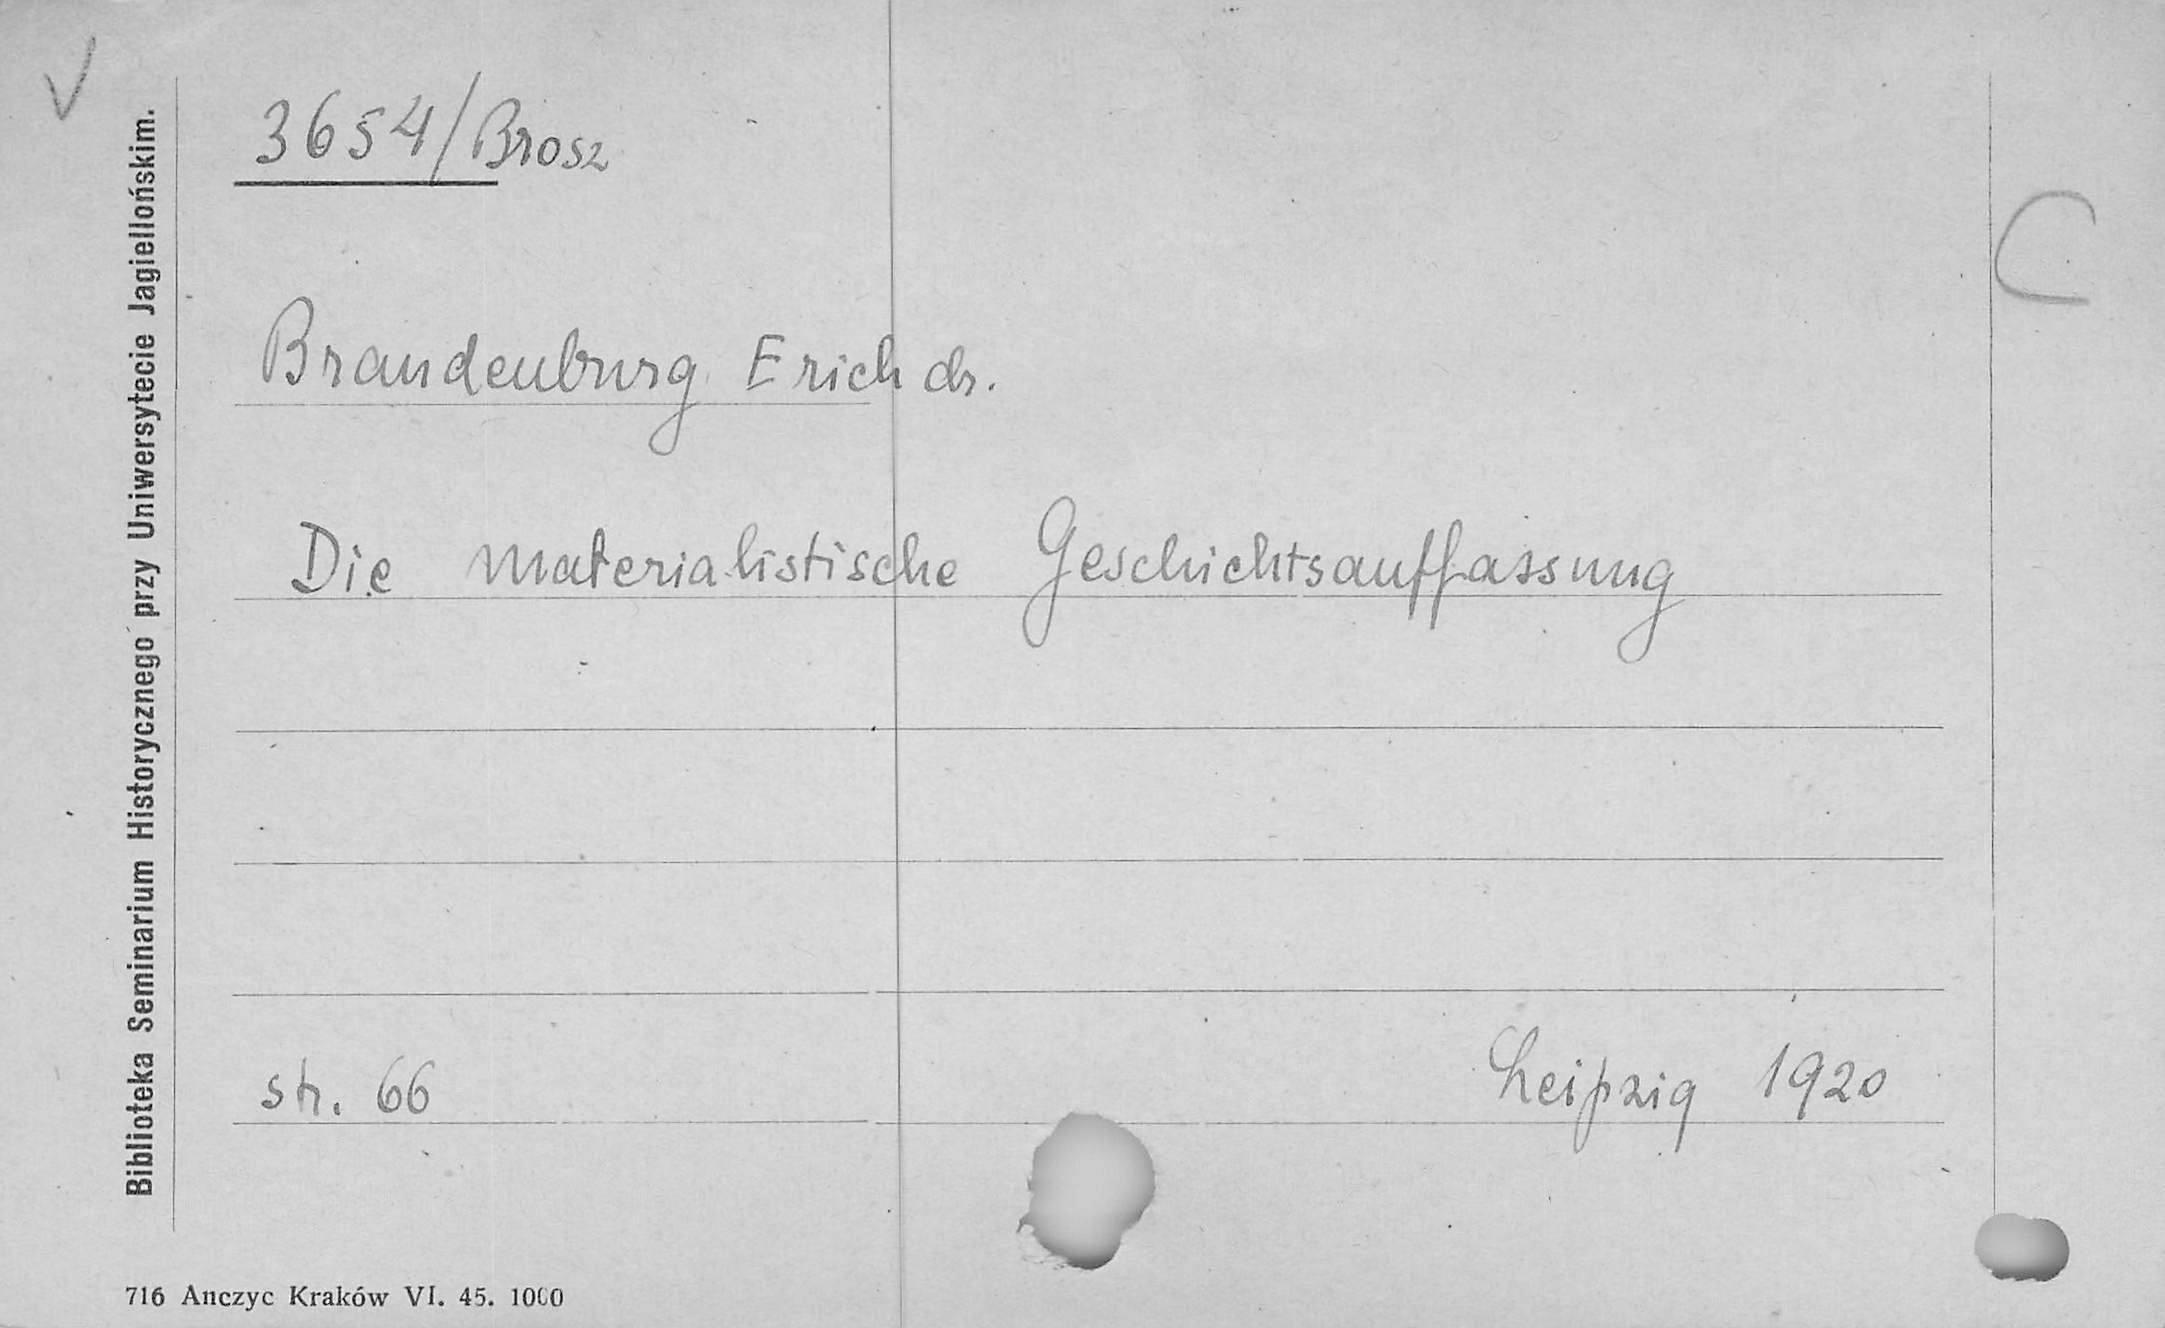 3654/Brosz
Brandenburg Erich dr.
Die materialistische Geschichtsauffassung
str. 66 Leipzig 1920
Biblioteka Seminarium Historycznego przy Uniwersytecie Jagiellońskim.
716 Anczyc Kraków VI. 45. 1000
C